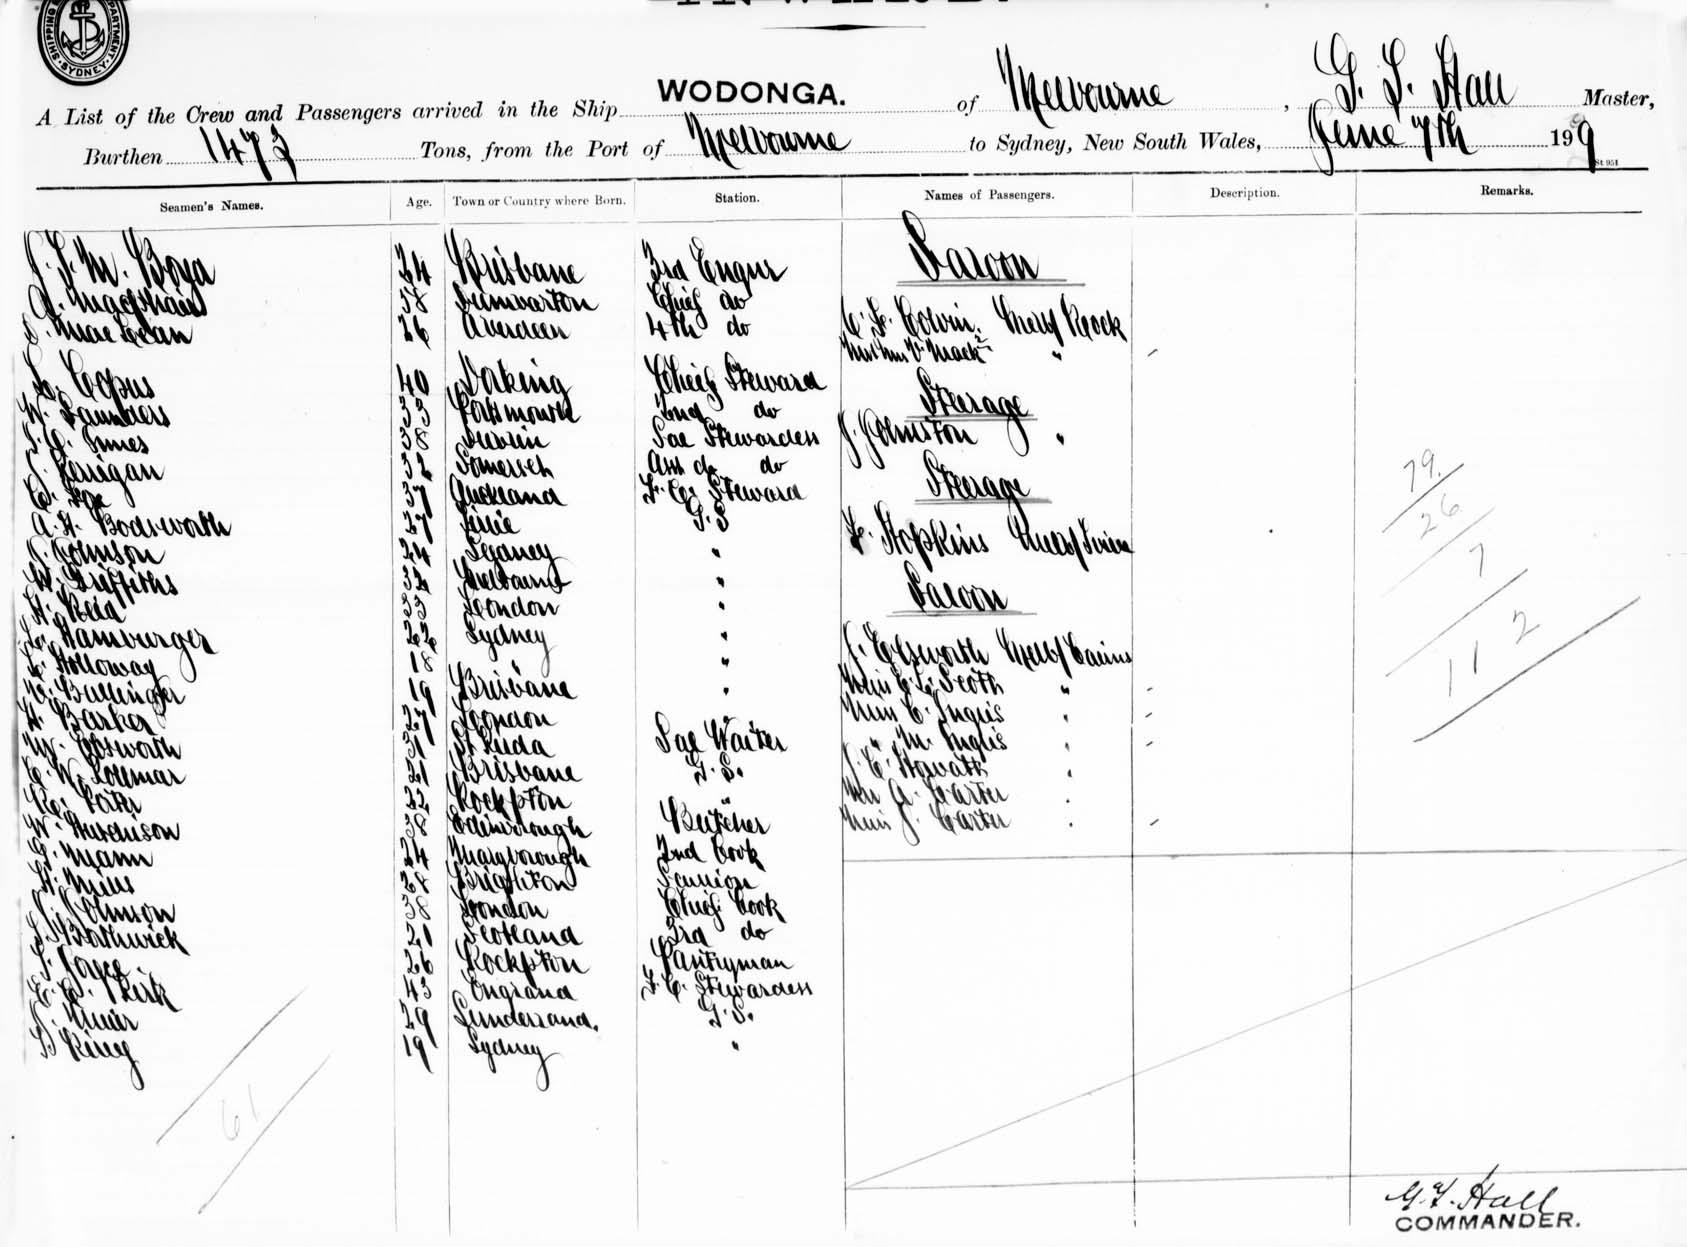 SHIPPING DEPARTMENT SYDNEY
A List of the Crew and Passengers arrived in the Ship WODONGA. of Melbourne, G. S. Hall Master,
Burthen 1473 Tons, from the Port of Melbourne to Sydney, New South Wales, June 7th 199
St 951
Seamen's Names. Age. Town or Country where Born. Station. Names of Passengers. Description. Remarks.
Saloon
24 Brisbane 3rd Engnr
58 Dumbarton Chief do
26 Aberdeen 4th do
40 Dorking Chief Steward
W. Saunders 33 Portsmouth 2nd do
Innes 38 Dublin Sal Stewardess
Kerrigan 32 Somerset Asst do do
C. Fox 37 Auckland F. C. Steward
A. H. Bodsworth 27 G.S
J. Johnson 24 Sydney "
W. Griffiths 32 Melbourne "
H. Reid 33 London "
Hamburger 22 Sydney "
Holloway 18 " "
Ballinger 19 Brisbane "
H. Barker 27 London "
W. Ebsworth 31 St Kilda Sal Waiter
21 Brisbane G.S.
Porter 22 Rockpton "
W. Hutchison 38 Edinborough Butcher
G. Mann 24 Maryborough 2nd Cook
H. Mills 28 Brighton Scullion
J. Johnson 38 London Chief Cook
Borthwick 21 Scotland 3rd do
J. Joyce 26 Rockpton Pantryman
E. E. Kirk 43 England F. C. Stewardess
29 Sunderland. G.S.
D King 19 Sydney "
61
C. F. Colvin. Melb/ Rock
"
Steerage
J. Johnston "
Steerage
F. Hopkins
Saloon
J. Ebsworth Melb/ Cairns
Miss C. C. Scott "
Miss C. Inglis "
" M. Inglis "
J. C. Howath "
Mrs A. Carter "
Miss J. Carter "
79.
26
7
112
G. S. Hall
COMMANDER.